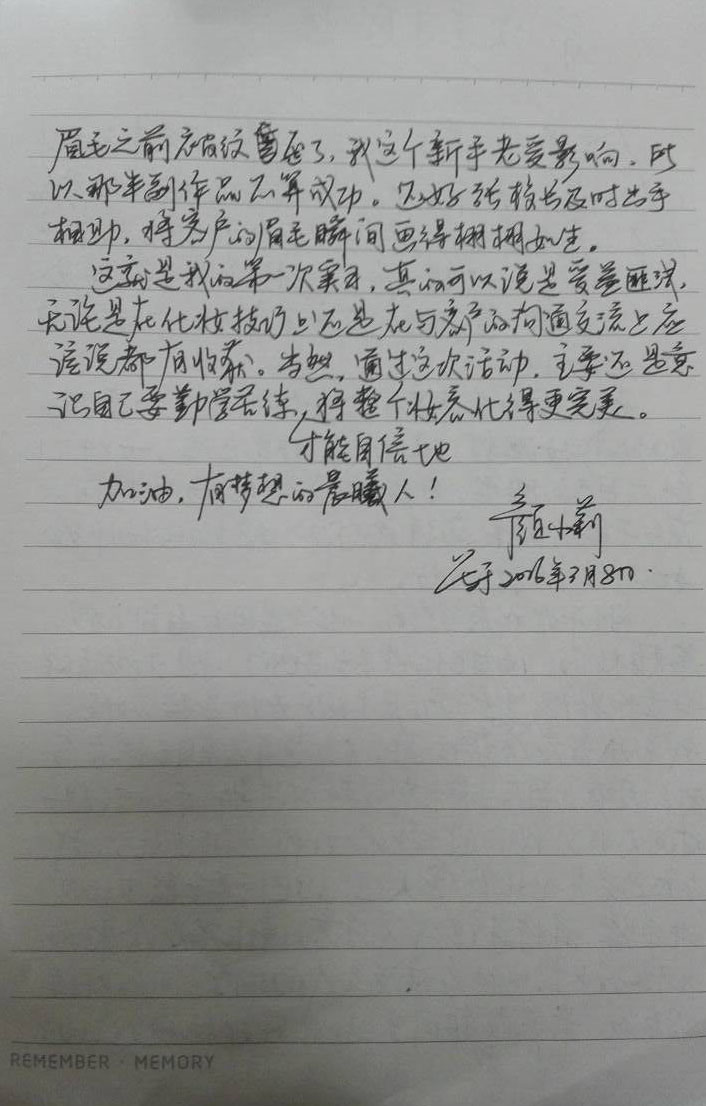 眉毛之前就被纹过了，我这个新手老受影响，所
以那半副作品不算成功。还好张校长及时出手
相助，将客户的眉毛瞬间画得栩栩如生。
这就是我的第一次实习，真的可以说是受益匪浅，
无论是在化妆技巧上还是在与客户的沟通交流上应
该说都有收获。当然，通过这次活动，主要还是意
识自己要勤学苦练，将整个妆容化得更完美。
才能自信地
加油，有梦想的晨曦人！
颜小莉
于2016年3月8日.
REMEMBER · MEMORY